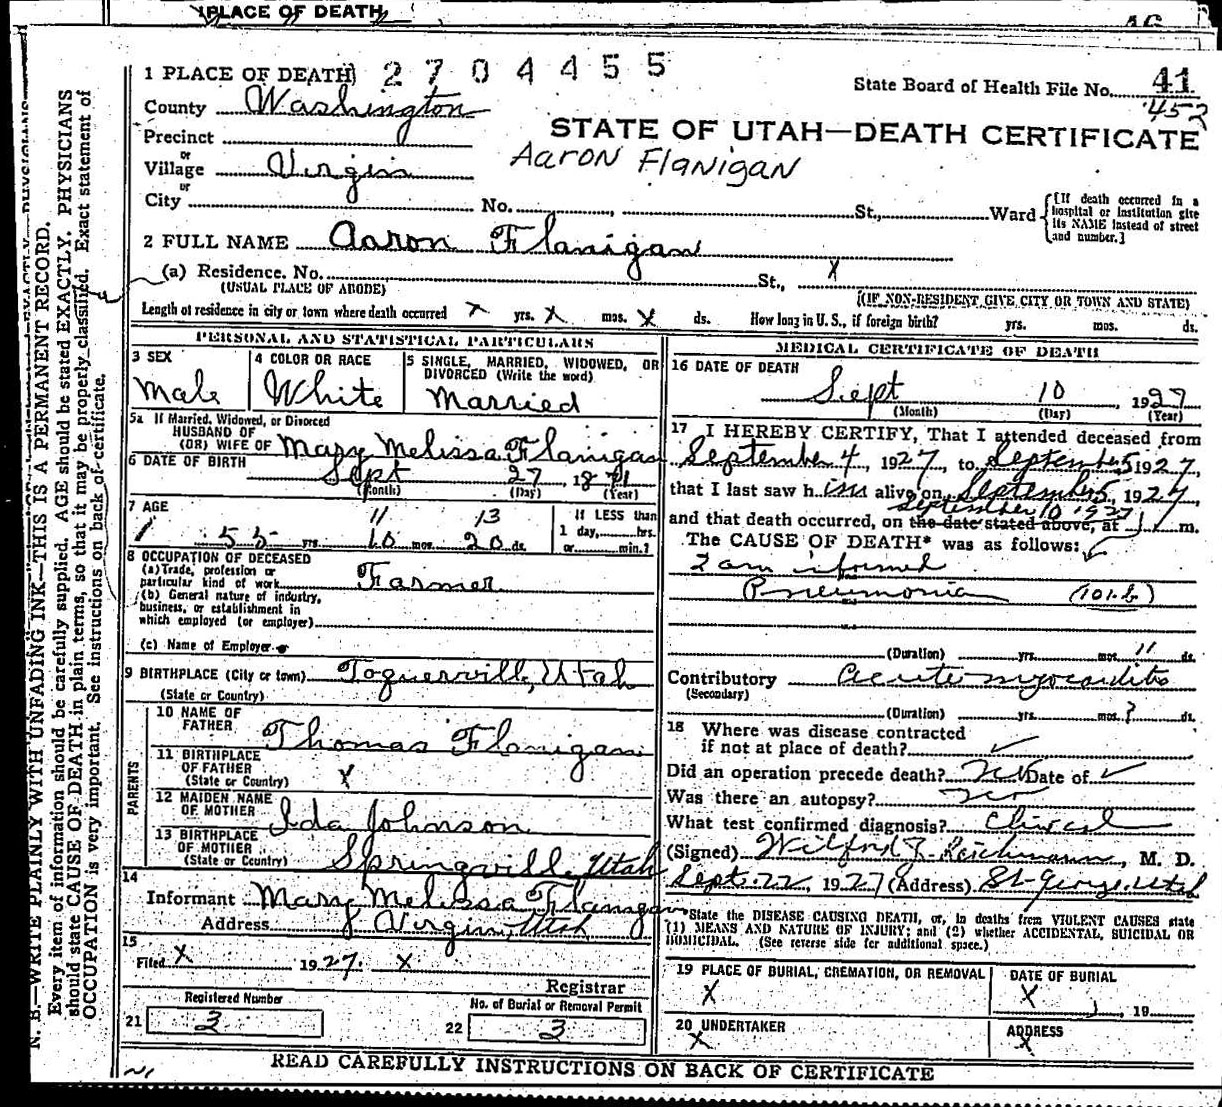 PLACE OF DEATH
1 PLACE OF DEATH 2704455
State Board of Health File No. 41
452
County Washington
STATE OF UTAH—DEATH CERTIFICATE
Precinct
Aaron Flanigan
or
Village Virgin
or
City No. St., Ward
[If death occurred in a
hospital or institution give
its NAME instead of street
and number.]
2 FULL NAME Aaron Flanigan
(a) Residence. No. St., X
(USUAL PLACE OF ABODE)
(IF NON-RESIDENT GIVE CITY OR TOWN AND STATE)
Length of residence in city or town where death occurred X yrs. X mos. X ds. How long in U. S., if foreign birth? yrs. mos. ds.
PERSONAL AND STATISTICAL PARTICULARS
3 SEX
Male
4 COLOR OR RACE
White
5 SINGLE, MARRIED, WIDOWED, OR
DIVORCED (Write the word)
Married
5a If Married, Widowed, or Divorced
HUSBAND OF
(OR) WIFE OF Mary Melissa Flanigan
6 DATE OF BIRTH Sept 27, 1871
(Month) (Day) (Year)
7 AGE 11 13
55 yrs. 10 mos. 20 ds.
If LESS than
1 day, hrs.
or min.?
8 OCCUPATION OF DECEASED
(a) Trade, profession or
particular kind of work Farmer
(b) General nature of industry,
business, or establishment in
which employed (or employer)
(c) Name of Employer
9 BIRTHPLACE (City or town) Toquerville, Utah
(State or Country)
PARENTS
10 NAME OF
FATHER Thomas Flanigan
11 BIRTHPLACE
OF FATHER
(State or Country) X
12 MAIDEN NAME
OF MOTHER Ida Johnson
13 BIRTHPLACE
OF MOTHER
(State or Country) Springville, Utah
14
Informant Mary Melissa Flanigan
Address Virgin Utah
15
Filed X 1927. X
Registrar
Registered Number
21 3
No. of Burial or Removal Permit
22 3
MEDICAL CERTIFICATE OF DEATH
16 DATE OF DEATH
Sept 10, 1927
(Month) (Day) (Year)
17 I HEREBY CERTIFY, That I attended deceased from
September 4, 1927, to September 5 1927,
that I last saw him alive on September 5, 1927
September 10 1927
and that death occurred, on the date stated above, at 1 m.
The CAUSE OF DEATH* was as follows:
I am informed
Pneumonia (101.b)
(Duration) yrs. mos. 11 ds.
Contributory Acute myocarditis
(Secondary)
(Duration) yrs. mos. ? ds.
18 Where was disease contracted
if not at place of death?
Did an operation precede death? no Date of
Was there an autopsy? no
What test confirmed diagnosis? Clinical
(Signed) Wilford J. Reichmann, M. D.
Sept. 22, 1927 (Address) St. George, Utah
*State the DISEASE CAUSING DEATH, or, in deaths from VIOLENT CAUSES state
(1) MEANS AND NATURE OF INJURY; and (2) whether ACCIDENTAL, SUICIDAL OR
HOMICIDAL. (See reverse side for additional space.)
19 PLACE OF BURIAL, CREMATION, OR REMOVAL
X
DATE OF BURIAL
X , 19
20 UNDERTAKER
X
ADDRESS
X
READ CAREFULLY INSTRUCTIONS ON BACK OF CERTIFICATE
N. B.—WRITE PLAINLY WITH UNFADING INK—THIS IS A PERMANENT RECORD.
Every item of information should be carefully supplied. AGE should be stated EXACTLY. PHYSICIANS
should state CAUSE OF DEATH in plain terms, so that it may be properly classified. Exact statement of
OCCUPATION is very important. See instructions on back of certificate.